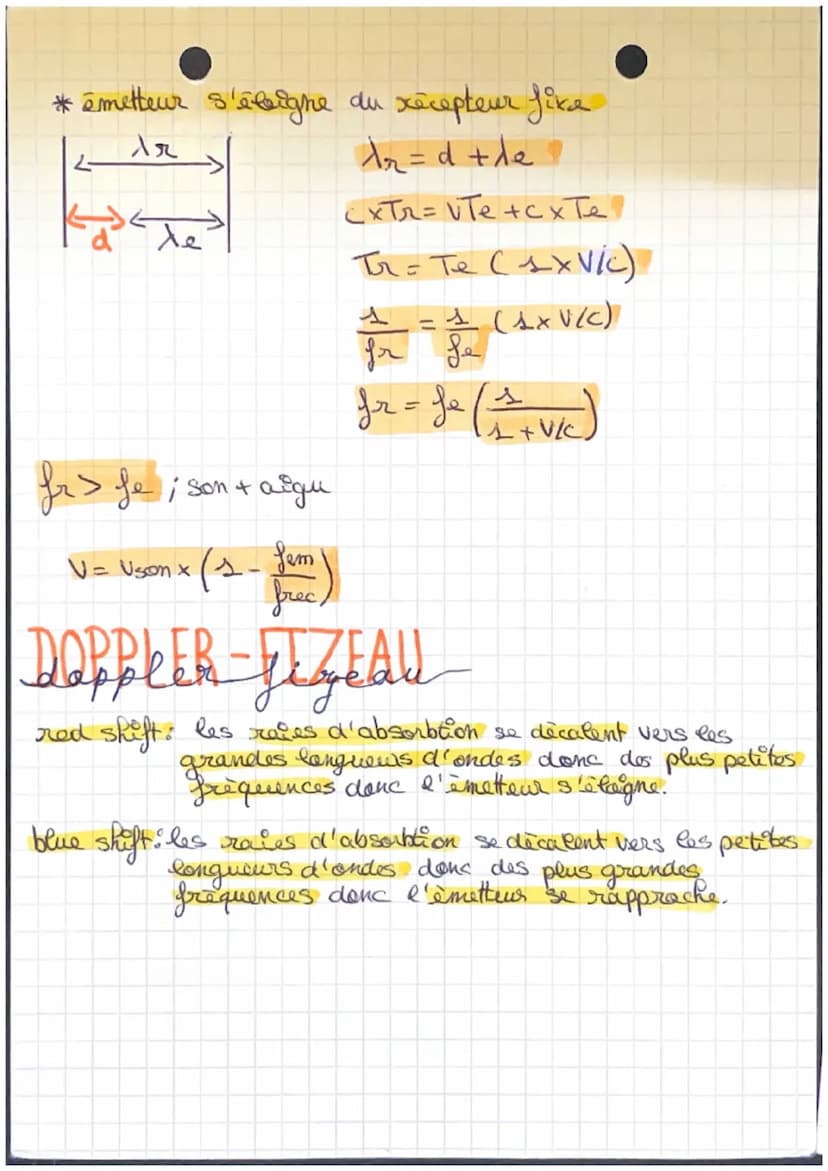 * émetteur s'éloigne du récepteur fixe
λr
d λe
λr = d + λe
c x Tr = VTe + c x Te
Tr = Te ( 1 x V/c)
1/fr = 1/fe ( 1 x V/c)
fr = fe ( 1 / 1 + V/c )
fr > fe ; son + aigu
V = Vson x ( 1 - fem/frec )
DOPPLER - FIZEAU
doppler fizeau
red shift : les raies d'absorbtion se décalent vers les
grandes longueurs d'ondes donc des plus petites
fréquences donc l'émetteur s'éloigne.
blue shift : les raies d'absorbtion se décalent vers les petites
longueurs d'ondes donc des plus grandes
fréquences donc l'émetteur se rapproche.